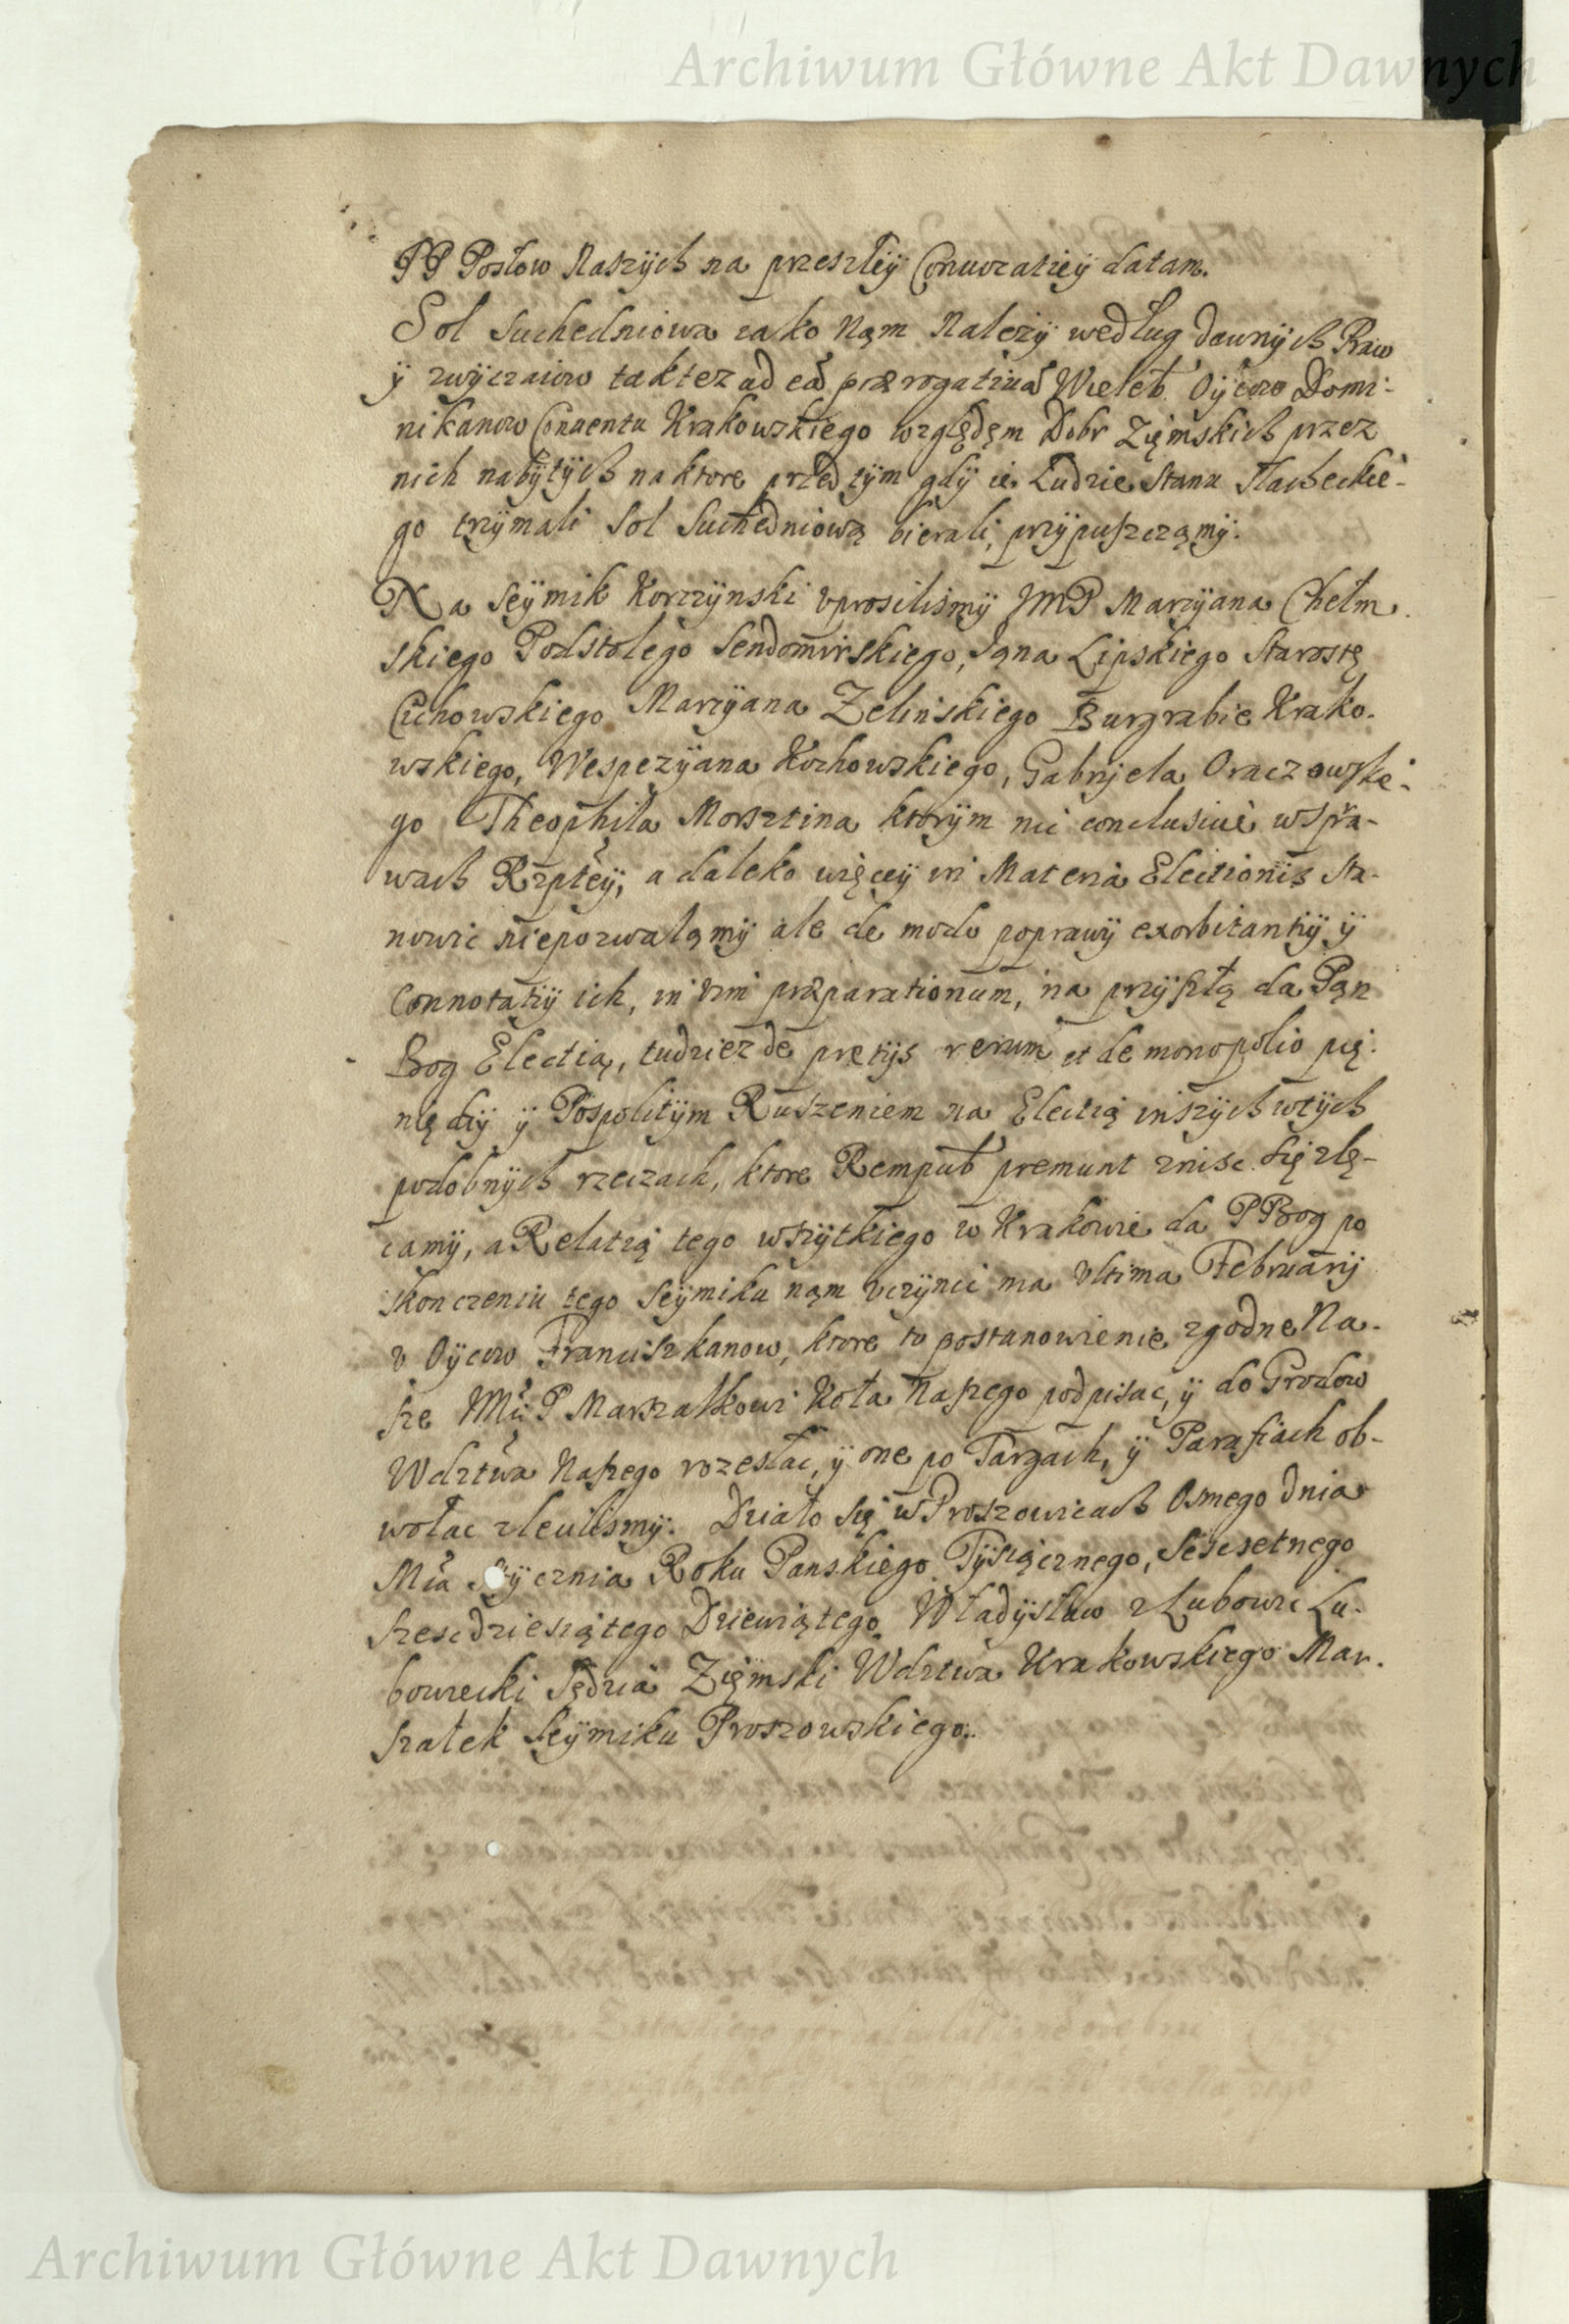 Archiwum Główne Akt Dawnych
PP Posłow Naszych na przeszłey Conuocatiey datam.
Sol Suchedniowa iako Nąm Nalezy według dawnych Praw
y zwyczaiow taktez ad eã prærogatiuã Wieleb. Oycow Domi-
nikanow Conuentu Krakowskiego względęm Dobr Zięmskich przez
nich nabytych na ktore przed tym gdy ie Ludzie Stanu Slacheckie-
go trzymali Sol Suchedniową bierali, przypuszcząmy.
Na Seymik Korczynski vprosilismy JMP Marzyana Chełm
skiego Podstolego Sendomirskiego, Jąna Lipskiego Starostę
Cichowskiego Marzyana Zelinskiego Burgrabie Krako-
wskiego, Wespezyana Kochowskiego, Gabryela Oraczowskie-
go Theophila Morsztina ktorym nic conclusiue wspra-
wach Rzptey, a daleko więcey in Materia Electionis sta-
nowic niepozwaląmy ale de modo poprawy exorbitantiy y
Connotatiy ich, in vim præparationum, na przyszłą da Pąn
Bog Electią, tudziez de pretijs rerum et de monopolio pię-
niędzy y Pospolitym Ruszeniem na Electią inszych wtych
podobnych rzeczach, ktore Rempub premunt znisc się zlę-
camy, a Relatią tego wszytkiego w Krakowie da P Bog po
skonczeniu tego Seymiku nąm vczynic ma Vltima Februarij
v Oycow Franciszkanow, ktore to postanowienie zgodne Na-
sze JMci P Marszałkowi Koła Naszego podpisac, y do Grodow
Wdztwa Naszego rozesłac, y one po Targach, y Parafiach ob-
wołac zlecilismy. Działo się w Proszowicach Osmego dnia
Mca Stycznia Roku Panskiego Tysiącznego, Sescsetnego
Szescdziesiątego Dziewiątego. Władysław z Lubowic Lu-
bowiecki Sędzia Zięmski Wdztwa Krakowskiego Mar-
szałek Seymiku Proszowskiego.
Archiwum Główne Akt Dawnych